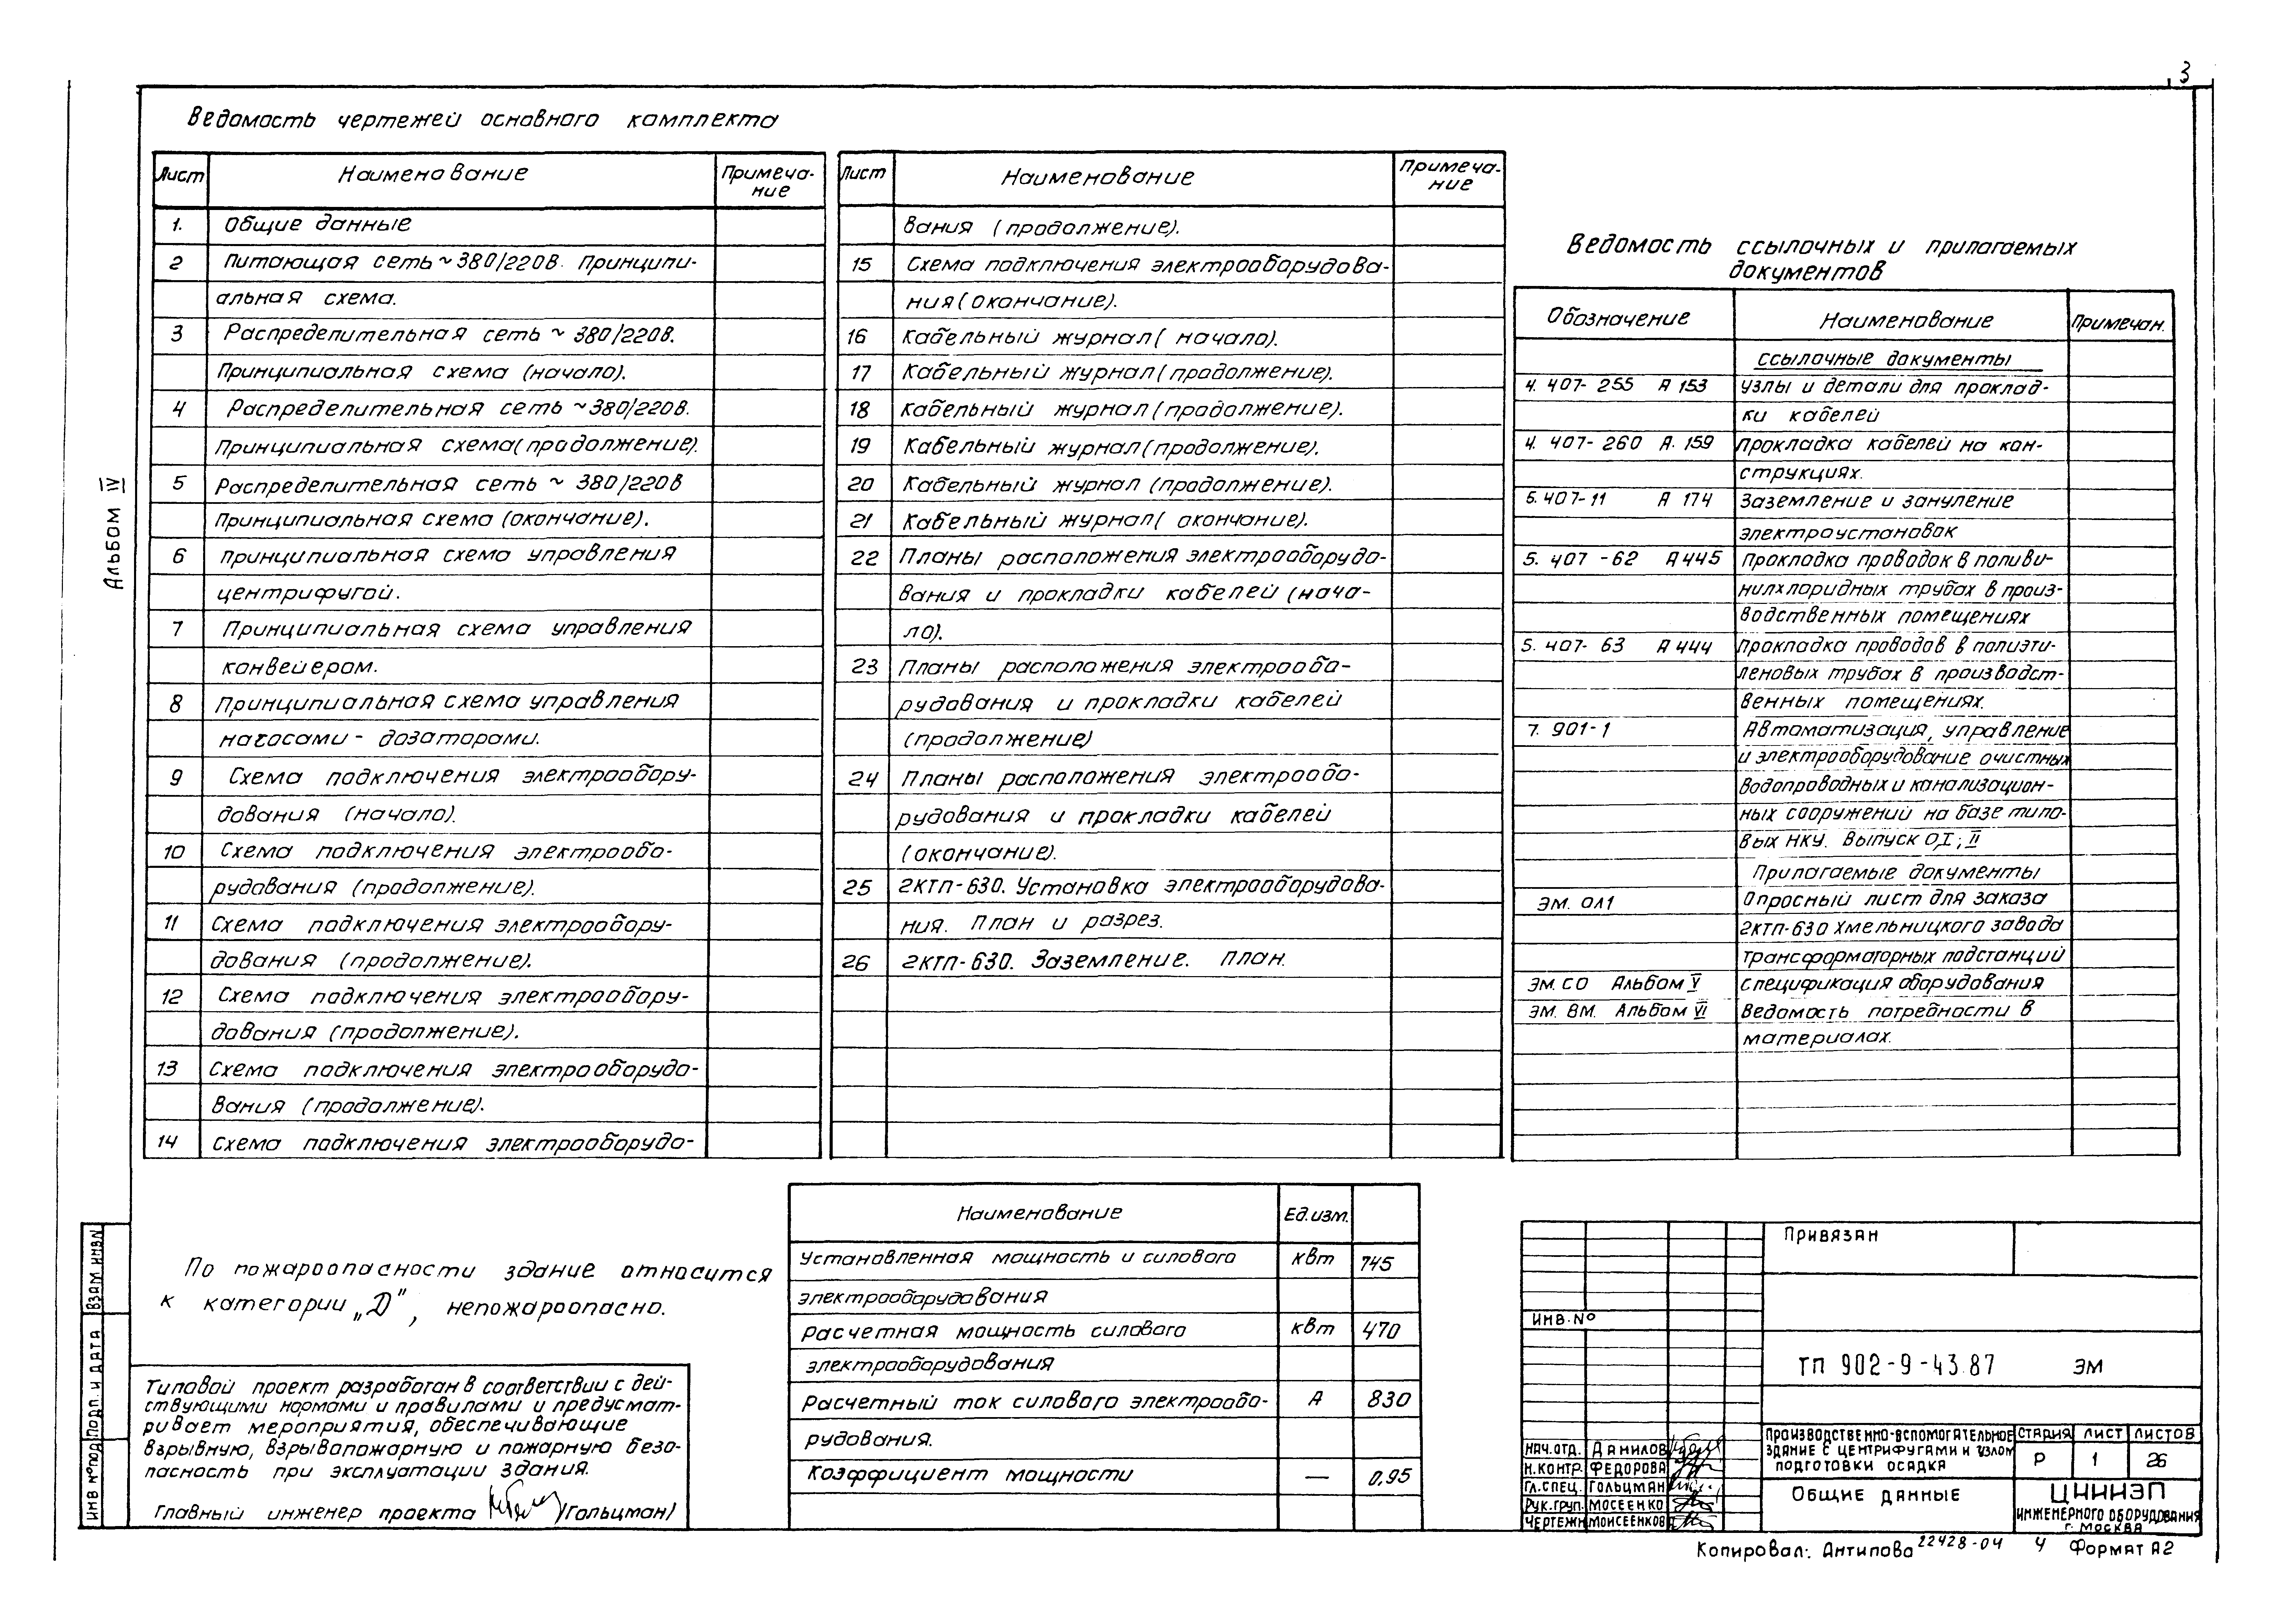 3
Ведомость чертежей основного комплекта
Лист Наименование Примеча-
ние
1. Общие данные
2 Питающая сеть ~ 380/220В. Принципи-
альная схема.
3 Распределительная сеть ~ 380/220В.
Принципиальная схема (начало).
4 Распределительная сеть ~ 380/220В.
Принципиальная схема (продолжение).
5 Распределительная сеть ~ 380/220В
Принципиальная схема (окончание).
6 Принципиальная схема управления
центрифугой.
7 Принципиальная схема управления
конвейером.
8 Принципиальная схема управления
насосами - дозаторами.
9 Схема подключения электрообору-
дования (начало).
10 Схема подключения электрообо-
рудования (продолжение).
11 Схема подключения электрообору-
дования (продолжение).
12 Схема подключения электрообору-
дования (продолжение).
13 Схема подключения электрооборудо-
вания (продолжение).
14 Схема подключения электрооборудо-
Лист Наименование Примеча-
ние
вания (продолжение).
15 Схема подключения электрооборудова-
ния (окончание).
16 Кабельный журнал ( начало).
17 Кабельный журнал (продолжение).
18 Кабельный журнал (продолжение).
19 Кабельный журнал (продолжение).
20 Кабельный журнал (продолжение).
21 Кабельный журнал ( окончание).
22 Планы расположения электрооборудо-
вания и прокладки кабелей (нача-
ло).
23 Планы расположения электрообо-
рудования и прокладки кабелей
(продолжение)
24 Планы расположения электрообо-
рудования и прокладки кабелей
(окончание).
25 2КТП-630. Установка электрооборудова-
ния. План и разрез.
26 2КТП-630. Заземление. План.
Ведомость ссылочных и прилагаемых
документов
Обозначение Наименование Примечан.
Ссылочные документы
4. 407- 255 А 153 Узлы и детали для проклад-
ки кабелей
4. 407- 260 А. 159 Прокладка кабелей на кон-
струкциях.
5. 407-11 А 174 Заземление и зануление
электроустановок
5. 407 -62 А 445 Прокладка проводок в поливи-
нилхлоридных трубах в произ-
водственных помещениях
5. 407- 63 А 444 Прокладка проводов в полиэти-
леновых трубах в производст-
венных помещениях.
7. 901-1 Автоматизация, управление
и электрооборудование очистных
водопроводных и канализацион-
ных сооружений на базе типо-
вых НКУ. Выпуск 0, I, II
Прилагаемые документы
ЭМ. ОЛ1 Опросный лист для заказа
2КТП-630 Хмельницкого завода
трансформаторных подстанций
ЭМ. СО Альбом V Спецификация оборудования
ЭМ. ВМ. Альбом VI Ведомость потребности в
материалах.
Альбом IV
По пожароопасности здание относится
к категории „Д", непожароопасно.
Типовой проект разработан в соответствии с дей-
ствующими нормами и правилами и предусмат-
ривает мероприятия, обеспечивающие
взрывную, взрывопожарную и пожарную безо-
пасность при эксплуатации здания.
Главный инженер проекта /Гольцман/
Наименование Ед.изм.
Установленная мощность и силового кВт 745
электрооборудования
Расчетная мощность силового кВт 470
электрооборудования
Расчетный ток силового электрообо- А 830
рудования.
Коэффициент мощности — 0,95
Привязан
ИНВ.№
ТП 902-9-43.87 ЭМ
НАЧ.ОТД. ДАНИЛОВ
Н.КОНТР. ФЕДОРОВА
ГЛ.СПЕЦ. ГОЛЬЦМАН
РУК.ГРУП. МОСЕЕНКО
ЧЕРТЕЖН МОИСЕЕНКОВА
ПРОИЗВОДСТВЕННО-ВСПОМОГАТЕЛЬНОЕ
ЗДАНИЕ С ЦЕНТРИФУГАМИ И УЗЛОМ
ПОДГОТОВКИ ОСАДКА
СТАДИЯ ЛИСТ ЛИСТОВ
Р 1 26
ОБЩИЕ ДАННЫЕ
ЦНИИЭП
ИНЖЕНЕРНОГО ОБОРУДОВАНИЯ
Г. МОСКВА
ВЗАМ ИНВ№
ПОДП. И ДАТА
ИНВ №ПОДЛ
Копировал: Антипова 22428-04 4 Формат А2